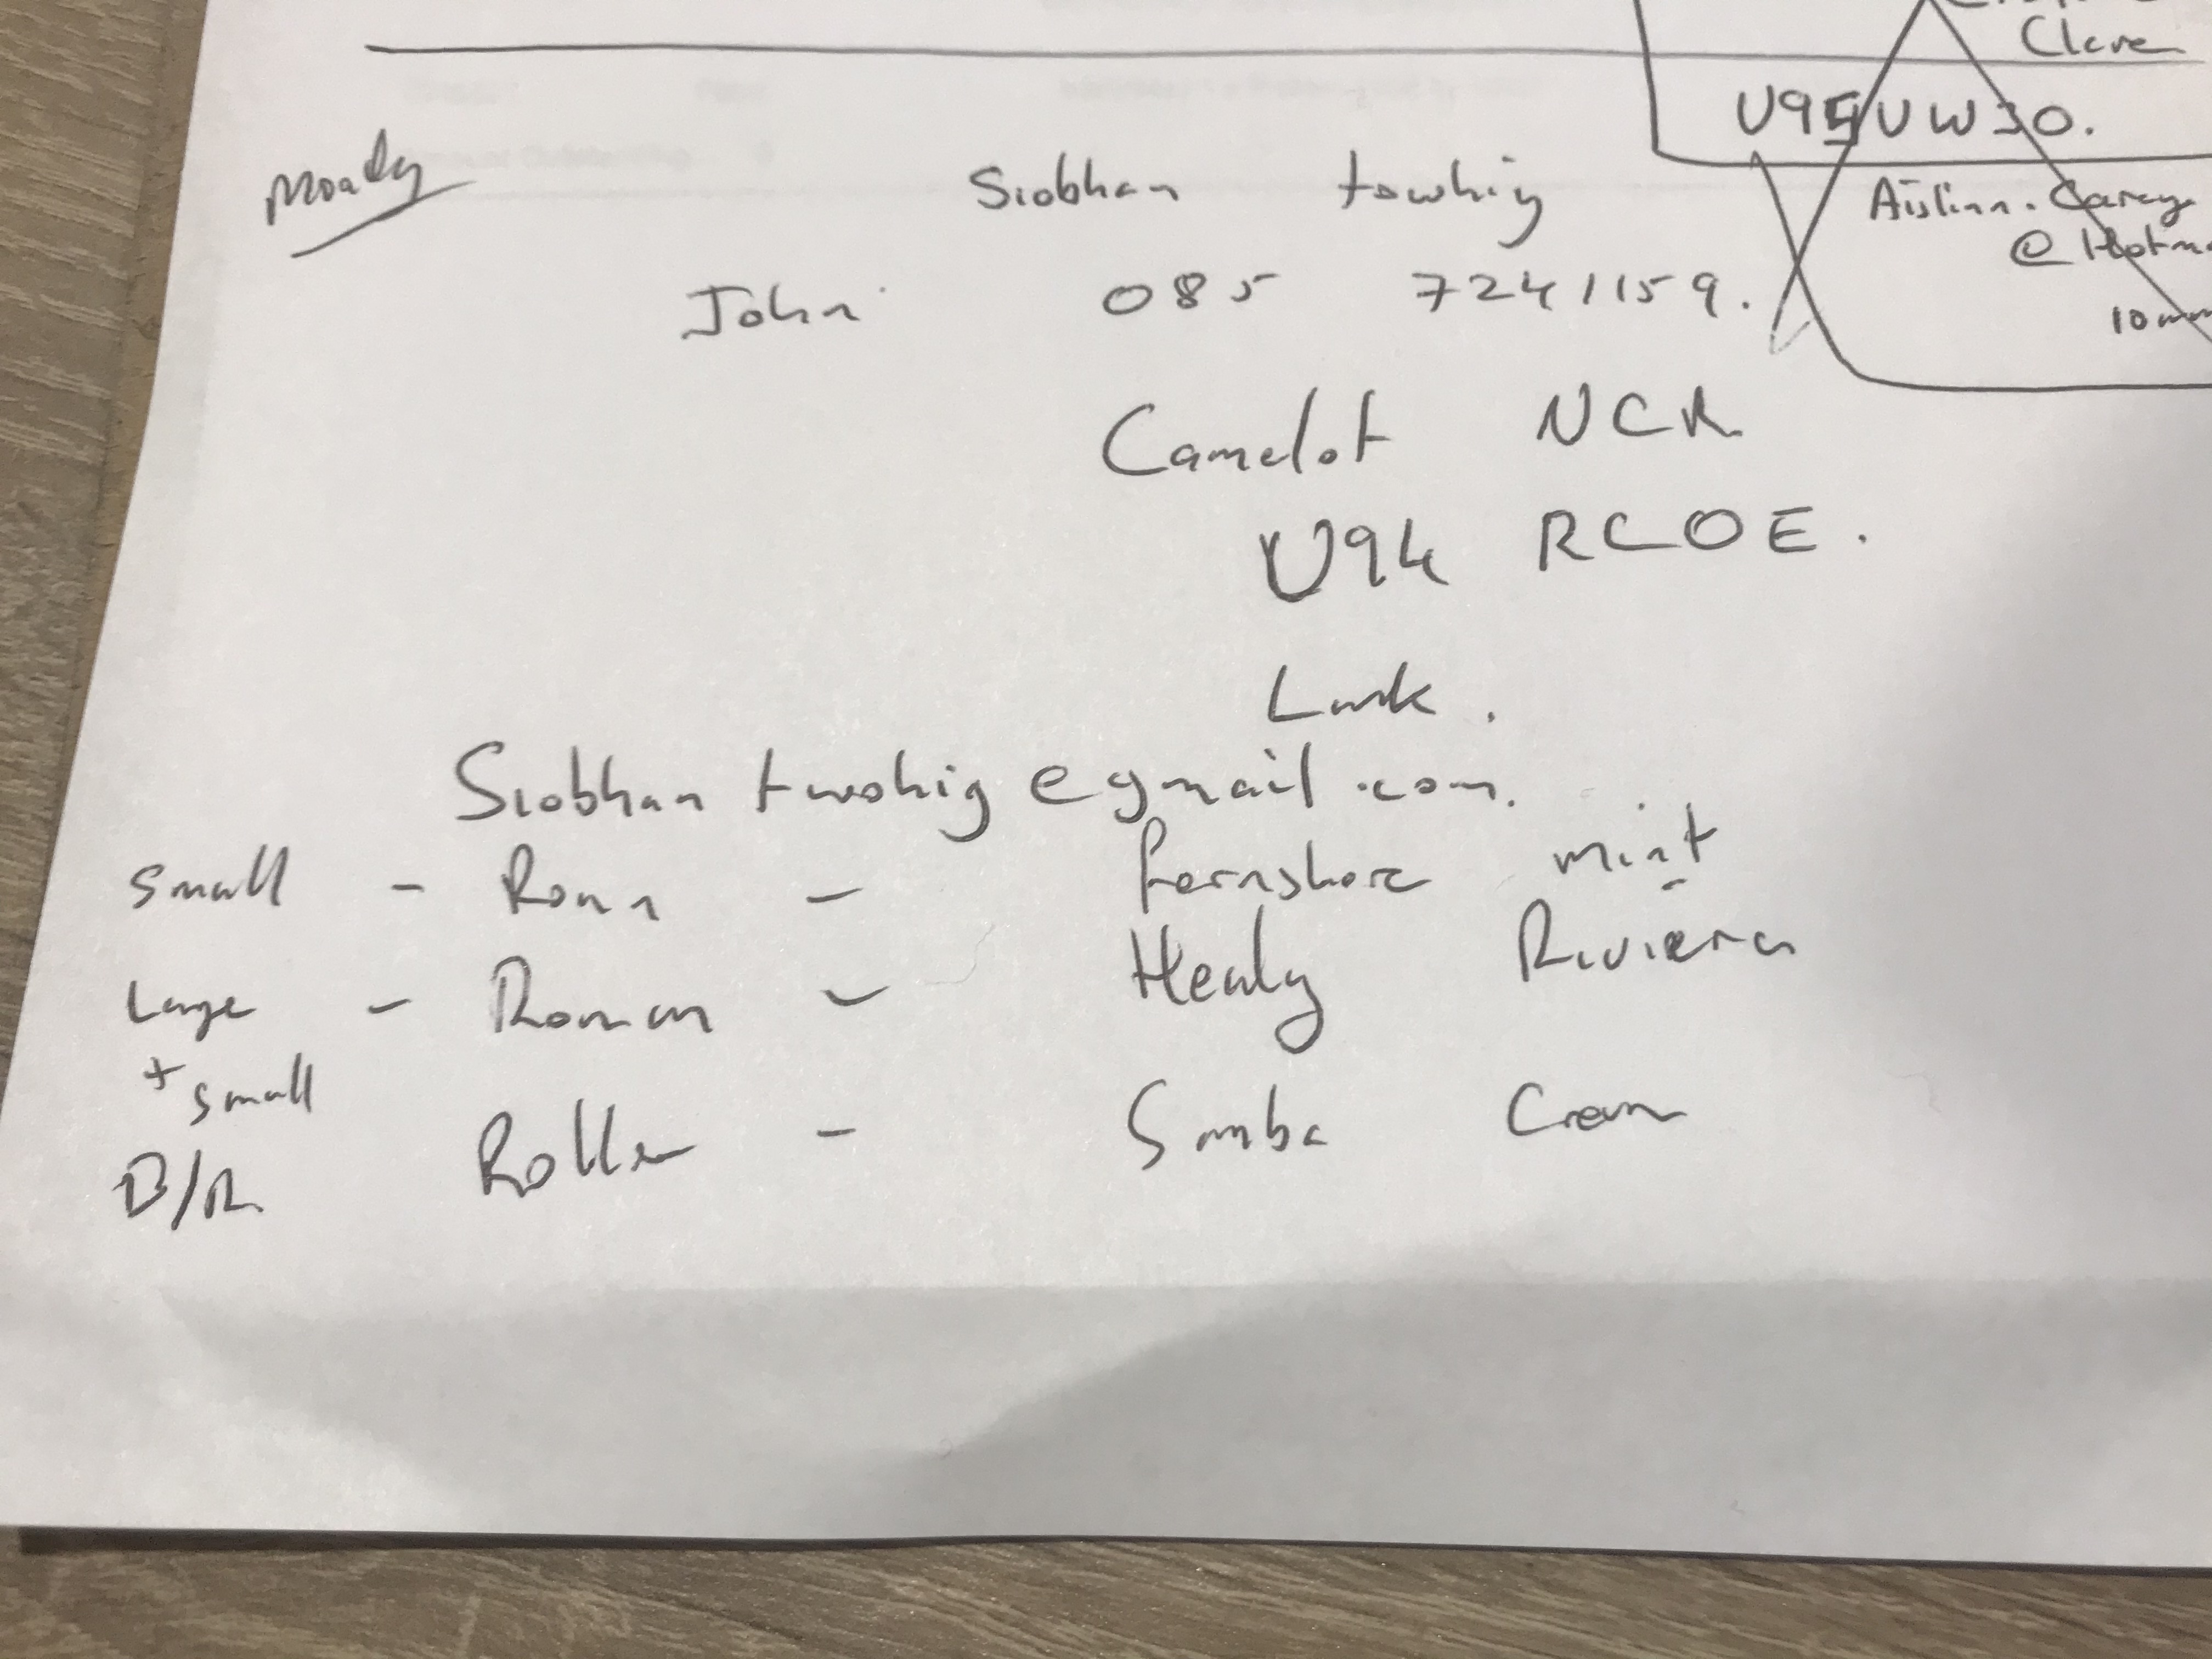 Clare
U95UW30.
Aislinn.Carey
@Hotm
10mm
Monday
Siobhan towhig
John 085 7241159.
Camelot NCR
U94 RCOE.
Lurk.
Siobhan twohig egmail.com.
Small - Roman - fernshore mint
Large - Roman - Healy Riviera
+ small
B/R Roller - Samba Cream